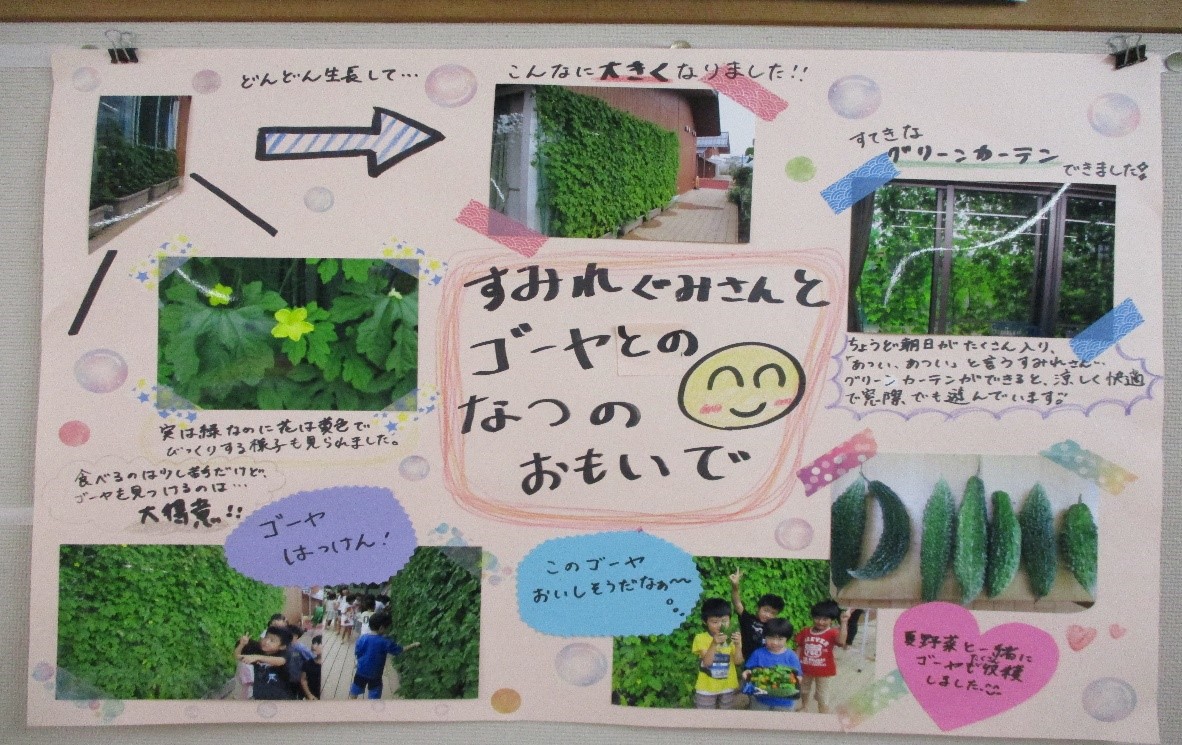 どんどん生長して…
こんなに大きくなりました!!
すてきな
グリーンカーテン
できました
すみれぐみさんと
ゴーヤとの
なつの
おもいで
ちょうど朝日がたくさん入り、
「あつい、あつい」と言うすみれさん…
グリーンカーテンができると、涼しく快適
で窓際でも遊んでいます。
実は緑なのに花は黄色で
びっくりする様子も見られました。
食べるのは少し苦手だけど、
ゴーヤを見つけるのは…
大得意!!
ゴーヤ
はっけん!
このゴーヤ
おいしそうだなぁ〜
夏野菜と一緒に
ゴーヤもたくさん収穫
しました。